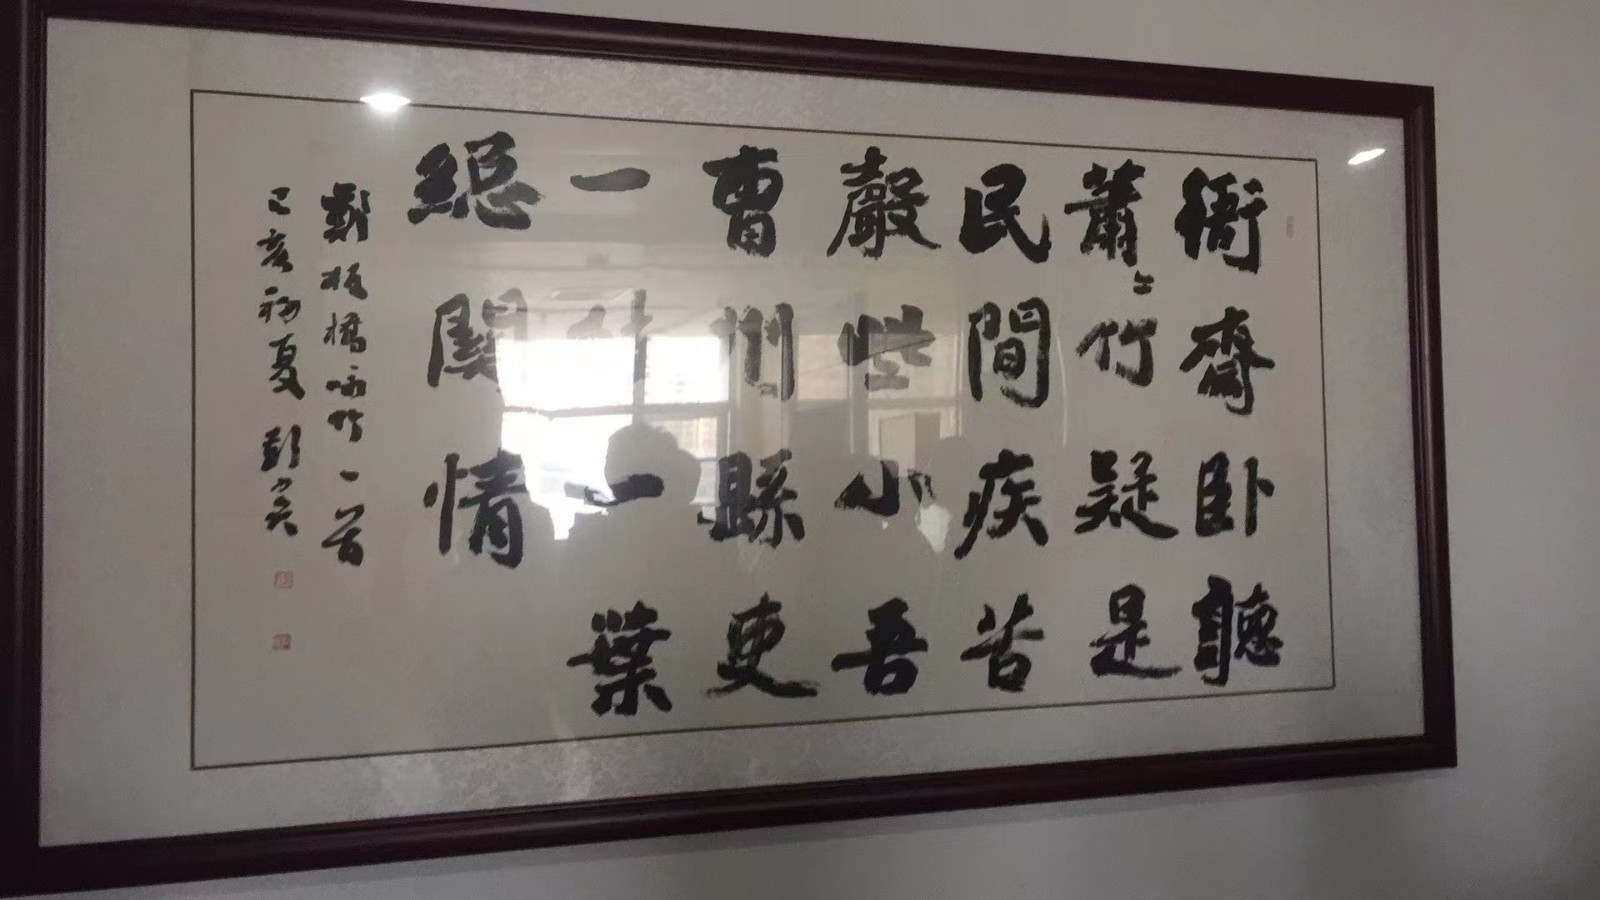 衙齋卧聽
蕭〻竹疑是
民間疾苦
聲些小吾
曹州縣吏
一枝一葉
總關情
鄭板橋咏竹一首
己亥初夏